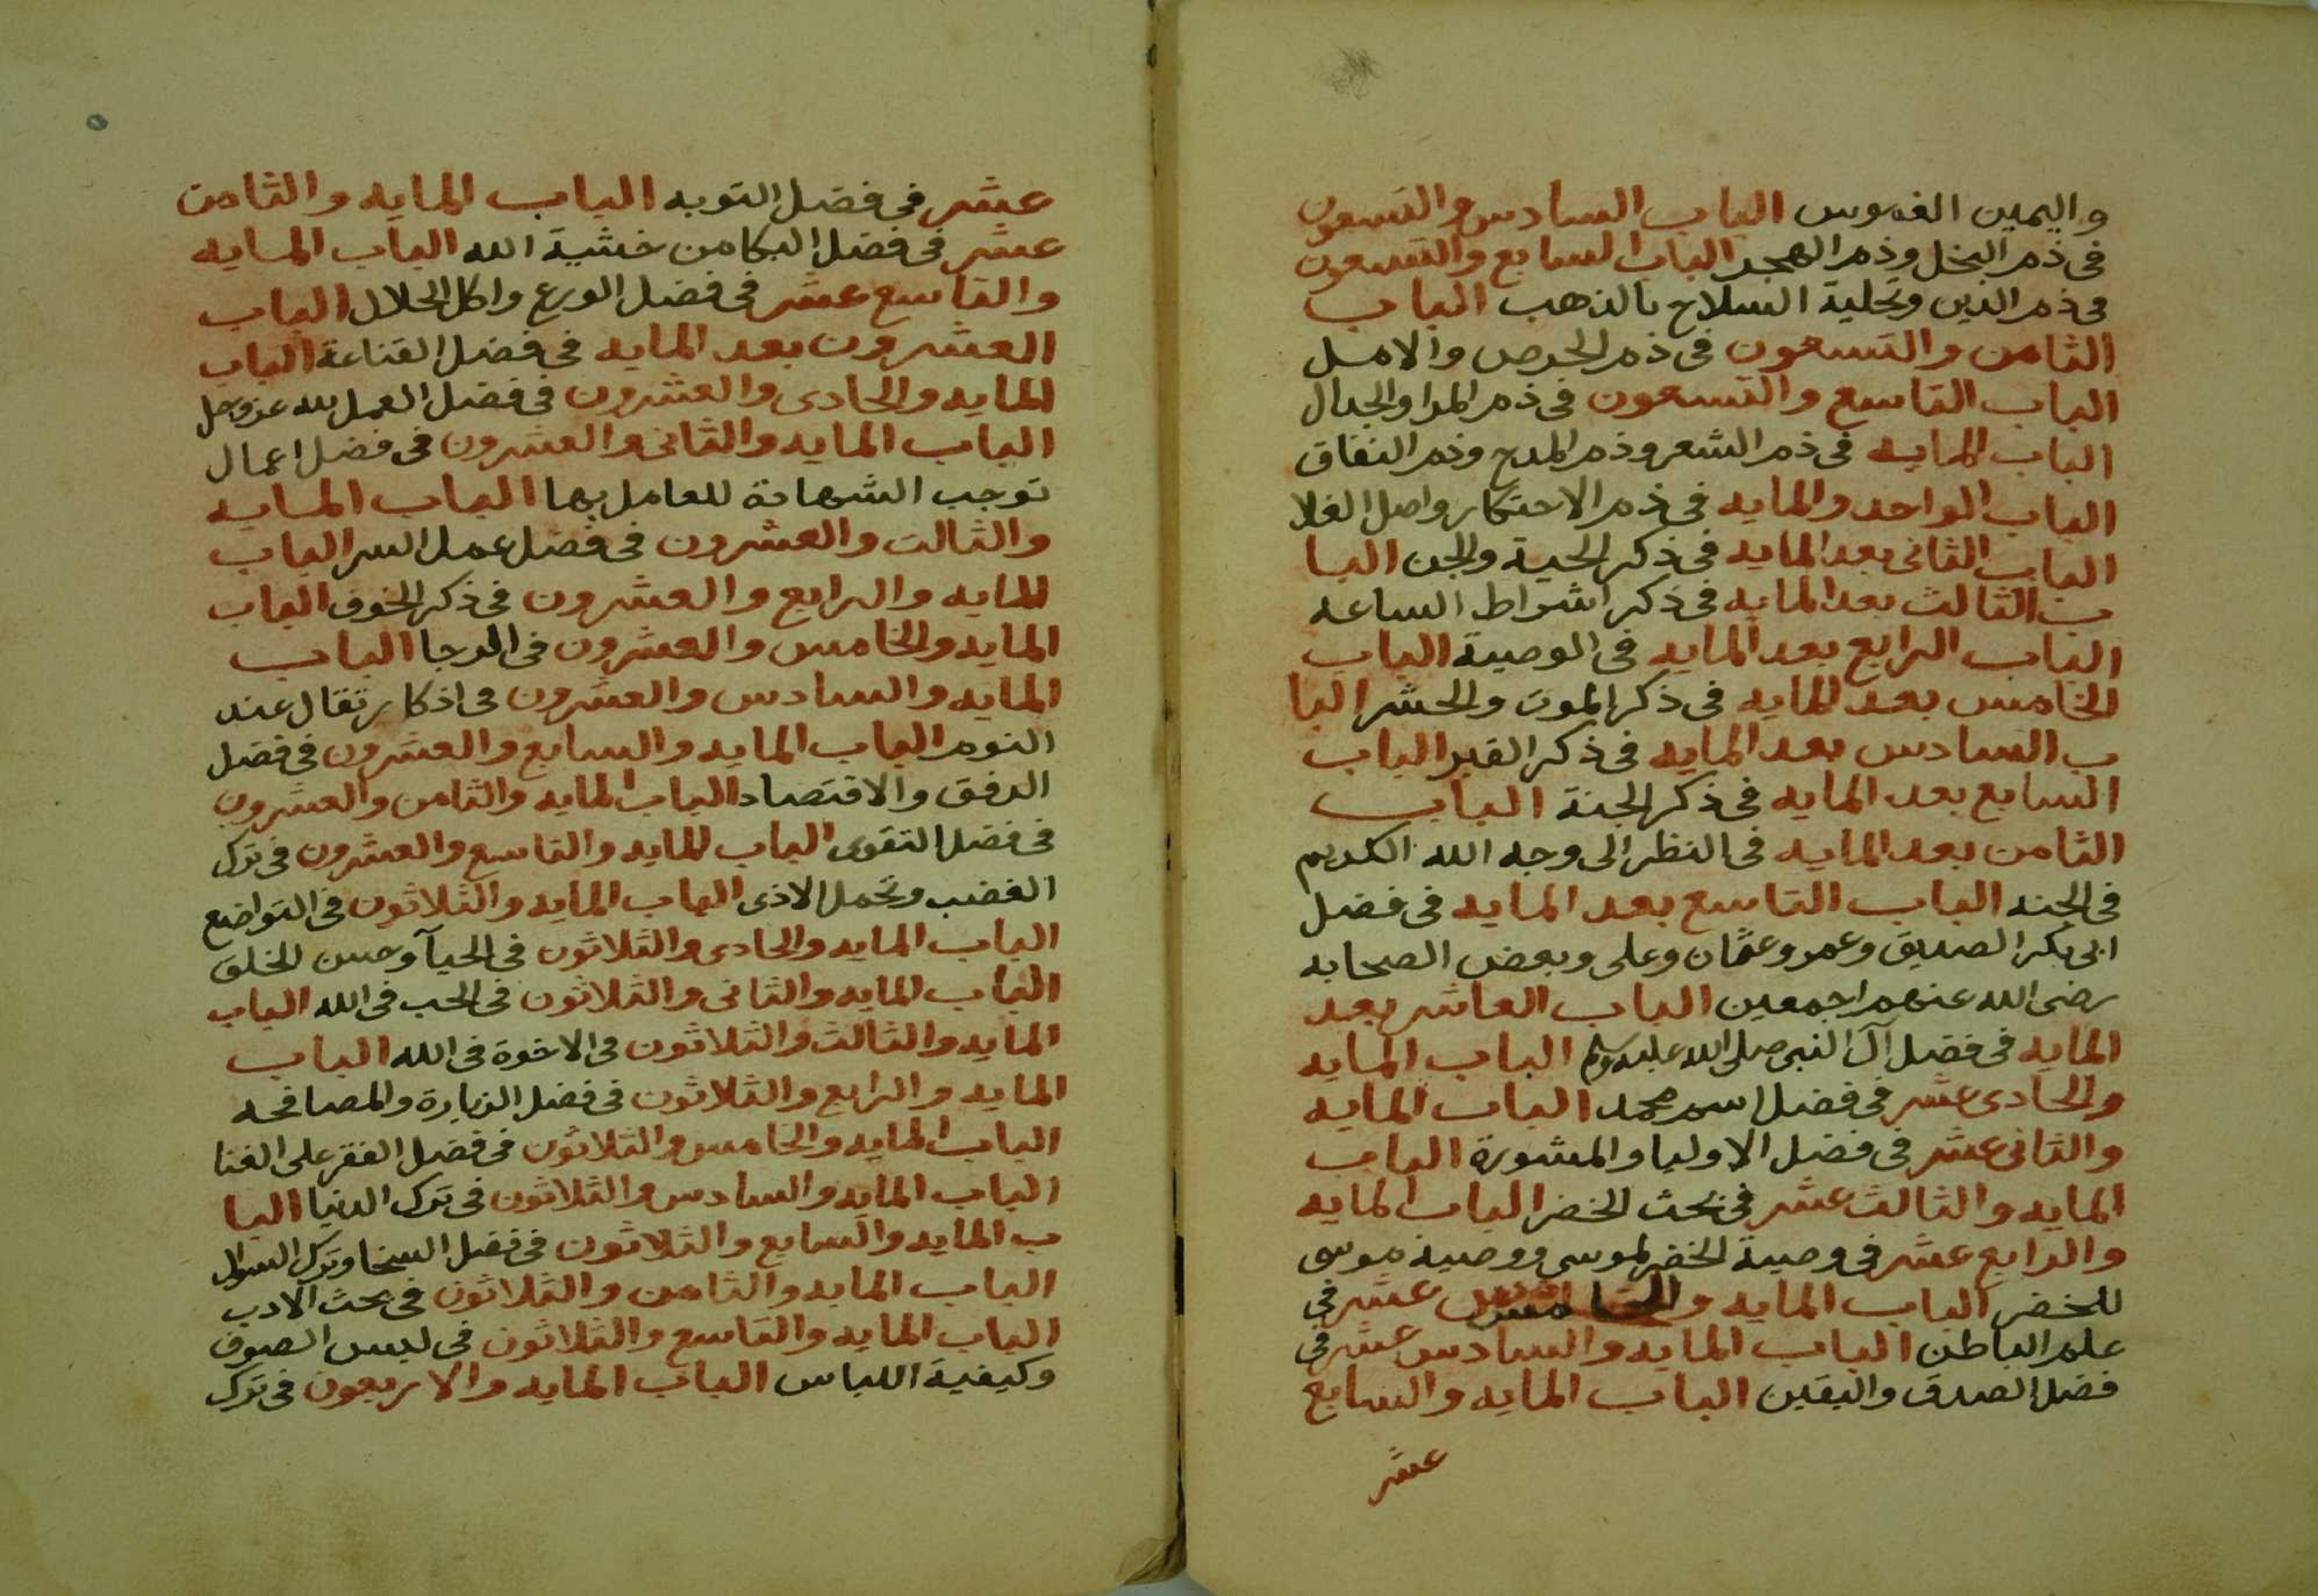 واليمين الغموس الباب السادس والتسعون
فى ذم البخل وذم الهجر الباب السابع والتسعون
فى ذم الدين وتحلية السلاح بالذهب الباب
الثامن والتسعون فى ذم الحرص والامل
الباب التاسع والتسعون فى ذم المرا والجدال
الباب المايه فى ذم الشعر وذم المدح وذم النفاق
الباب الواحد والمايه فى ذم الاحتكار واصل الغلا
الباب الثانى بعد المايه فى ذكر الحية والجن البا
ب الثالث بعد المايه فى ذكر اشراط الساعه
الباب الرابع بعد المايه فى الوصية الباب
الخامس بعد المايه فى ذكر الموت والحشر البا
ب السادس بعد المايه فى ذكر القبر الباب
السابع بعد المايه فى ذكر الجنة الباب
الثامن بعد المايه فى النظر الى وجه الله الكريم
فى الجنه الباب التاسع بعد المايه فى فضل
ابى بكر الصديق وعمر وعثمان وعلى وبعض الصحابه
رضى الله عنهم اجمعين الباب العاشر بعد
المايه فى فضل آل النبى صلى الله عليه وسلم الباب المايه
والحادى عشر فى فضل اسم محمد الباب المايه
والثانى عشر فى فضل الاوليا والمشورة الباب
المايه والثالث عشر فى بحث الخضر الباب المايه
والرابع عشر فى وصية الخضر لموسى ووصية موسى
للخضر الباب المايه والخامس عشر فى
علم الباطن الباب المايه والسادس عشر فى
فضل الصدق واليقين الباب المايه والسابع
عشر
عشر فى فضل التوبه الباب المايه والثامن
عشر فى فضل البكا من خشية الله الباب المايه
والتاسع عشر فى فضل الورع واكل الحلال الباب
العشرون بعد المايه فى فضل القناعة الباب
المايه والحادى والعشرون فى فضل العمل لله عز وجل
الباب المايه والثانى والعشرون فى فضل اعمال
توجب الشهادة للعامل بها الباب المايه
والثالث والعشرون فى فضل عمل السر الباب
المايه والرابع والعشرون فى ذكر الخوف الباب
المايه والخامس والعشرون فى الرجا الباب
المايه والسادس والعشرون فى اذكار تقال عند
النوم الباب المايه والسابع والعشرون فى فضل
الرفق والاقتصاد الباب المايه والثامن والعشرون
فى فضل التقوى الباب المايه والتاسع والعشرون فى ترك
الغضب وتحمل الاذى الباب المايه والثلاثون فى التواضع
الباب المايه والحادى والثلاثون فى الحيآ وحسن الخلق
الباب المايه والثانى والثلاثون فى الحب فى الله الباب
المايه والثالث والثلاثون فى الاخوة فى الله الباب
المايه والرابع والثلاثون فى فضل الزيارة والمصافحه
الباب المايه والخامس والثلاثون فى فضل الفقر على الغنا
الباب المايه والسادس والثلاثون فى ترك الدنيا البا
ب المايه والسابع والثلاثون فى فضل السخا وترك السوال
الباب المايه والثامن والثلاثون فى بحث الادب
الباب المايه والتاسع والثلاثون فى لبس الصوف
وكيفية اللباس الباب المايه والاربعون فى ترك